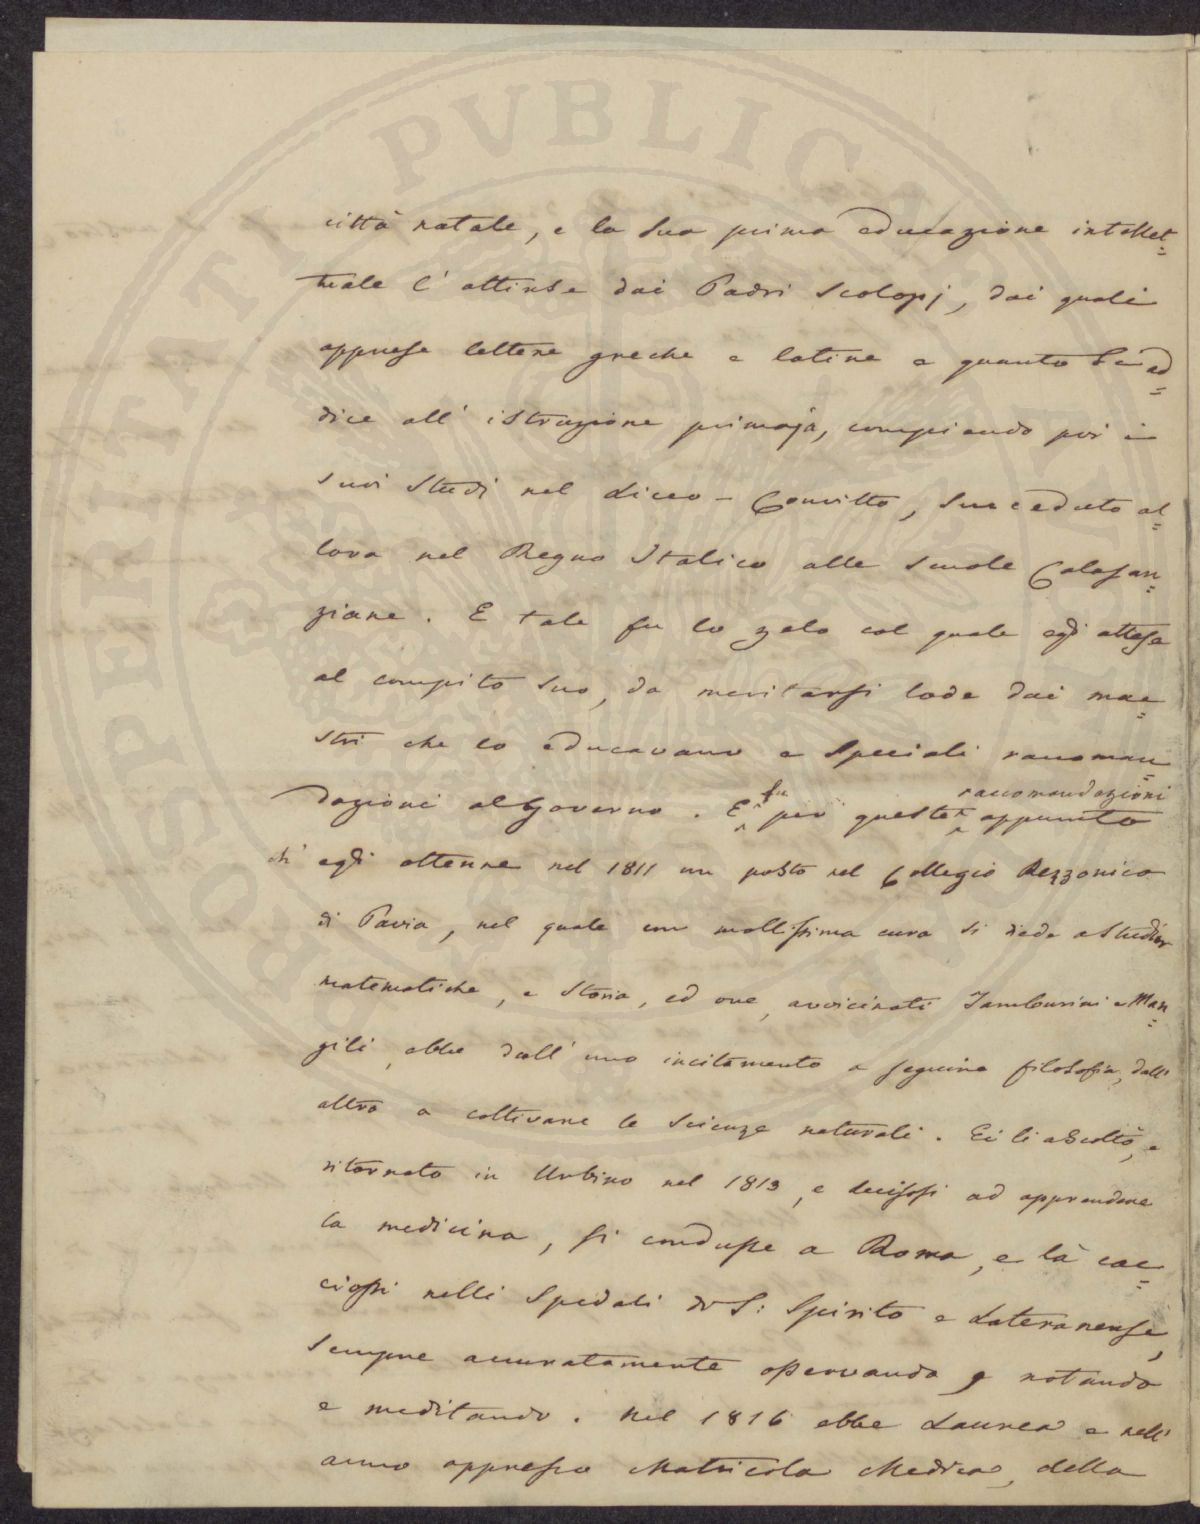 città natale, e la sua prima educazione intellet=
tuale l'attinse dai Padri Scolopj, dai quali
apprese lettere greche e latine e quanto s'ad=
dice all'istruzione primaja, compiendo poi i
suoi studi nel Liceo-Convitto, succeduto al=
lora nel Regno Italico alle scuole Calasan=
ziane. E tale fu lo zelo col quale egli attese
al compito suo, da meritarsi lode dai mae=
stri che lo educavano e speciali raccoman=
dazioni al Governo. E fu per queste raccomandazioni appunto
ch'egli ottenne nel 1811 un posto nel Collegio Rezzonico
di Pavia, nel quale con moltissima cura si diede a studiar
matematiche, e storia, ed ove, avvicinati Tamburini e Man=
gili, ebbe dall'uno incitamento a seguire filosofia, dall'
altro a coltivare le scienze naturali. Ei li ascoltò, e
ritornato in Urbino nel 1813, e decisosi ad apprendere
la medicina, si condusse a Roma, e là cac=
ciossi nelli Spedali di S: Spirito e Lateranense,
sempre accuratamente osservando e notando
e meditando. Nel 1816 ebbe Laurea e nell'
anno appresso Matricola Medica, della
PROSPERITATI PVBLICAE